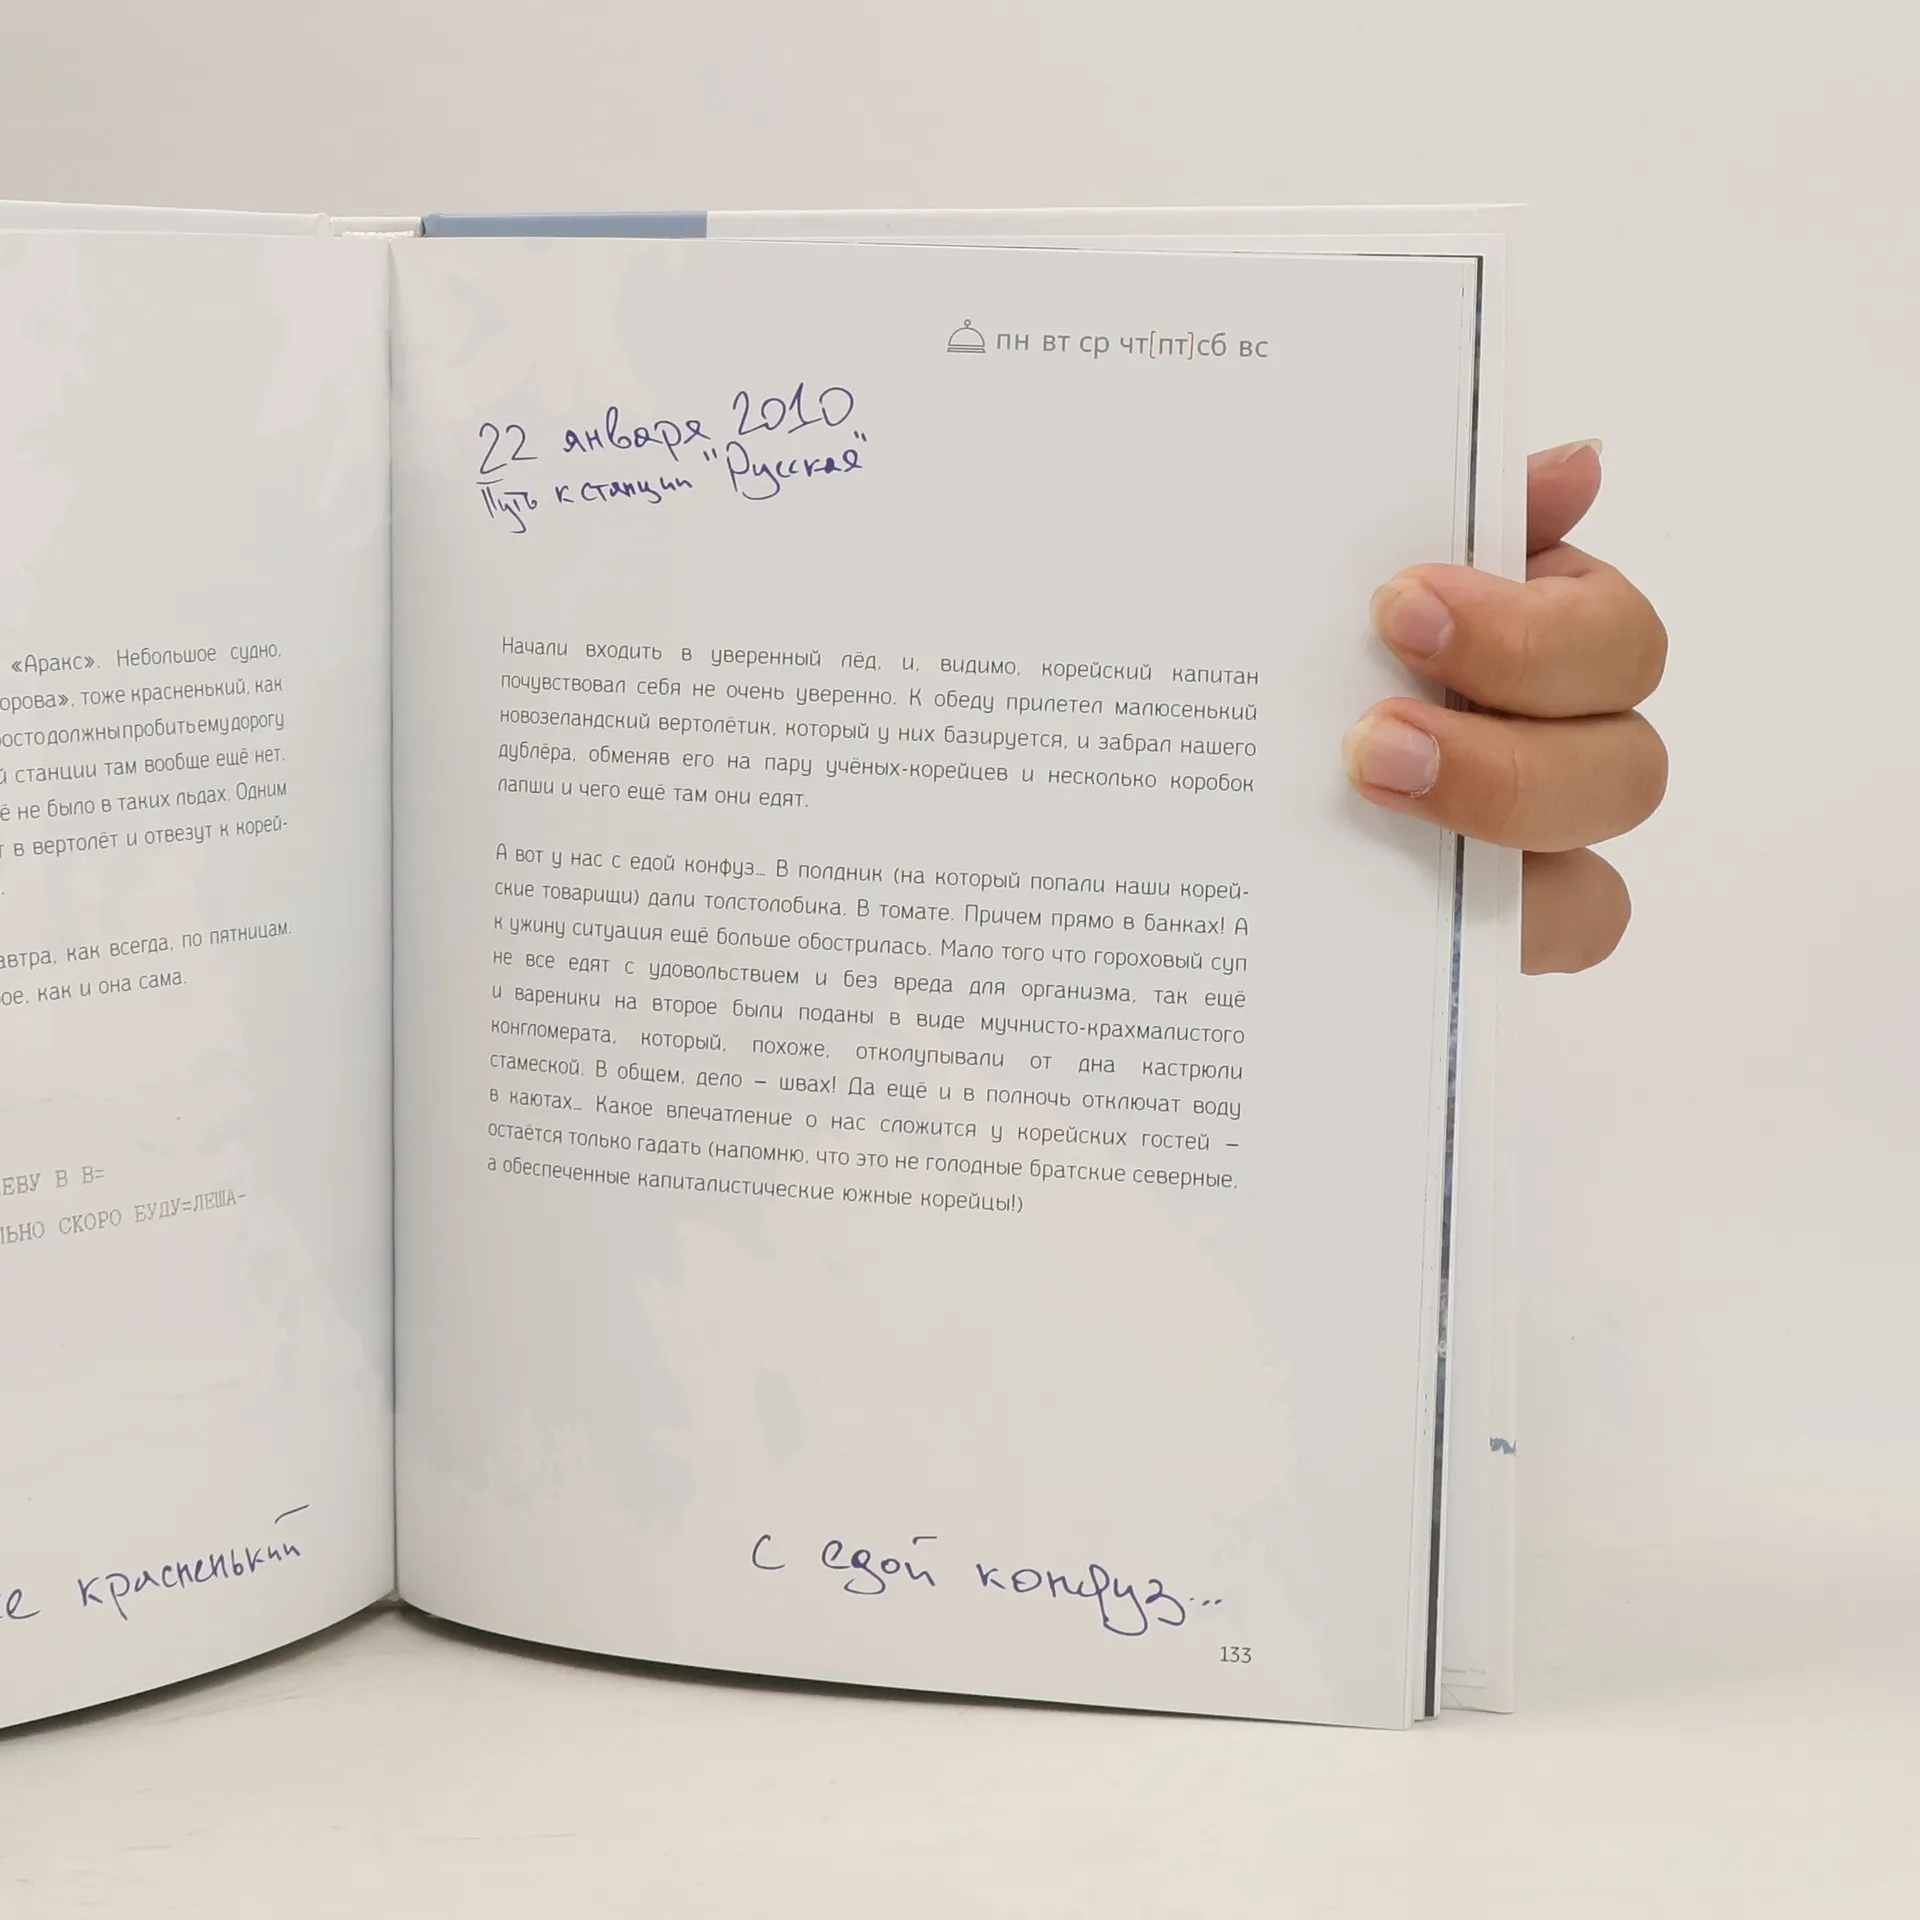 «Аракс». Небольшое судно,
орова», тоже красненький, как
осто должны пробить ему дорогу
й станции там вообще ещё нет.
ё не было в таких льдах. Одним
т в вертолёт и отвезут к корей-
.
автра, как всегда, по пятницам.
ое, как и она сама.
ЕВУ В В=
ЛЬНО СКОРО БУДУ=ЛЕША-
е красненький
пн вт ср чт[пт]сб вс
22 января 2010
Путь к станции "Русская"
Начали входить в уверенный лёд, и, видимо, корейский капитан
почувствовал себя не очень уверенно. К обеду прилетел малюсенький
новозеландский вертолётик, который у них базируется, и забрал нашего
дублёра, обменяв его на пару учёных-корейцев и несколько коробок
лапши и чего ещё там они едят.
А вот у нас с едой конфуз… В полдник (на который попали наши корей-
ские товарищи) дали толстолобика. В томате. Причем прямо в банках! А
к ужину ситуация ещё больше обострилась. Мало того что гороховый суп
не все едят с удовольствием и без вреда для организма, так ещё
и вареники на второе были поданы в виде мучнисто-крахмалистого
конгломерата, который, похоже, отколупывали от дна кастрюли
стамеской. В общем, дело – швах! Да ещё и в полночь отключат воду
в каютах… Какое впечатление о нас сложится у корейских гостей –
остаётся только гадать (напомню, что это не голодные братские северные,
а обеспеченные капиталистические южные корейцы!)
с едой конфуз...
133